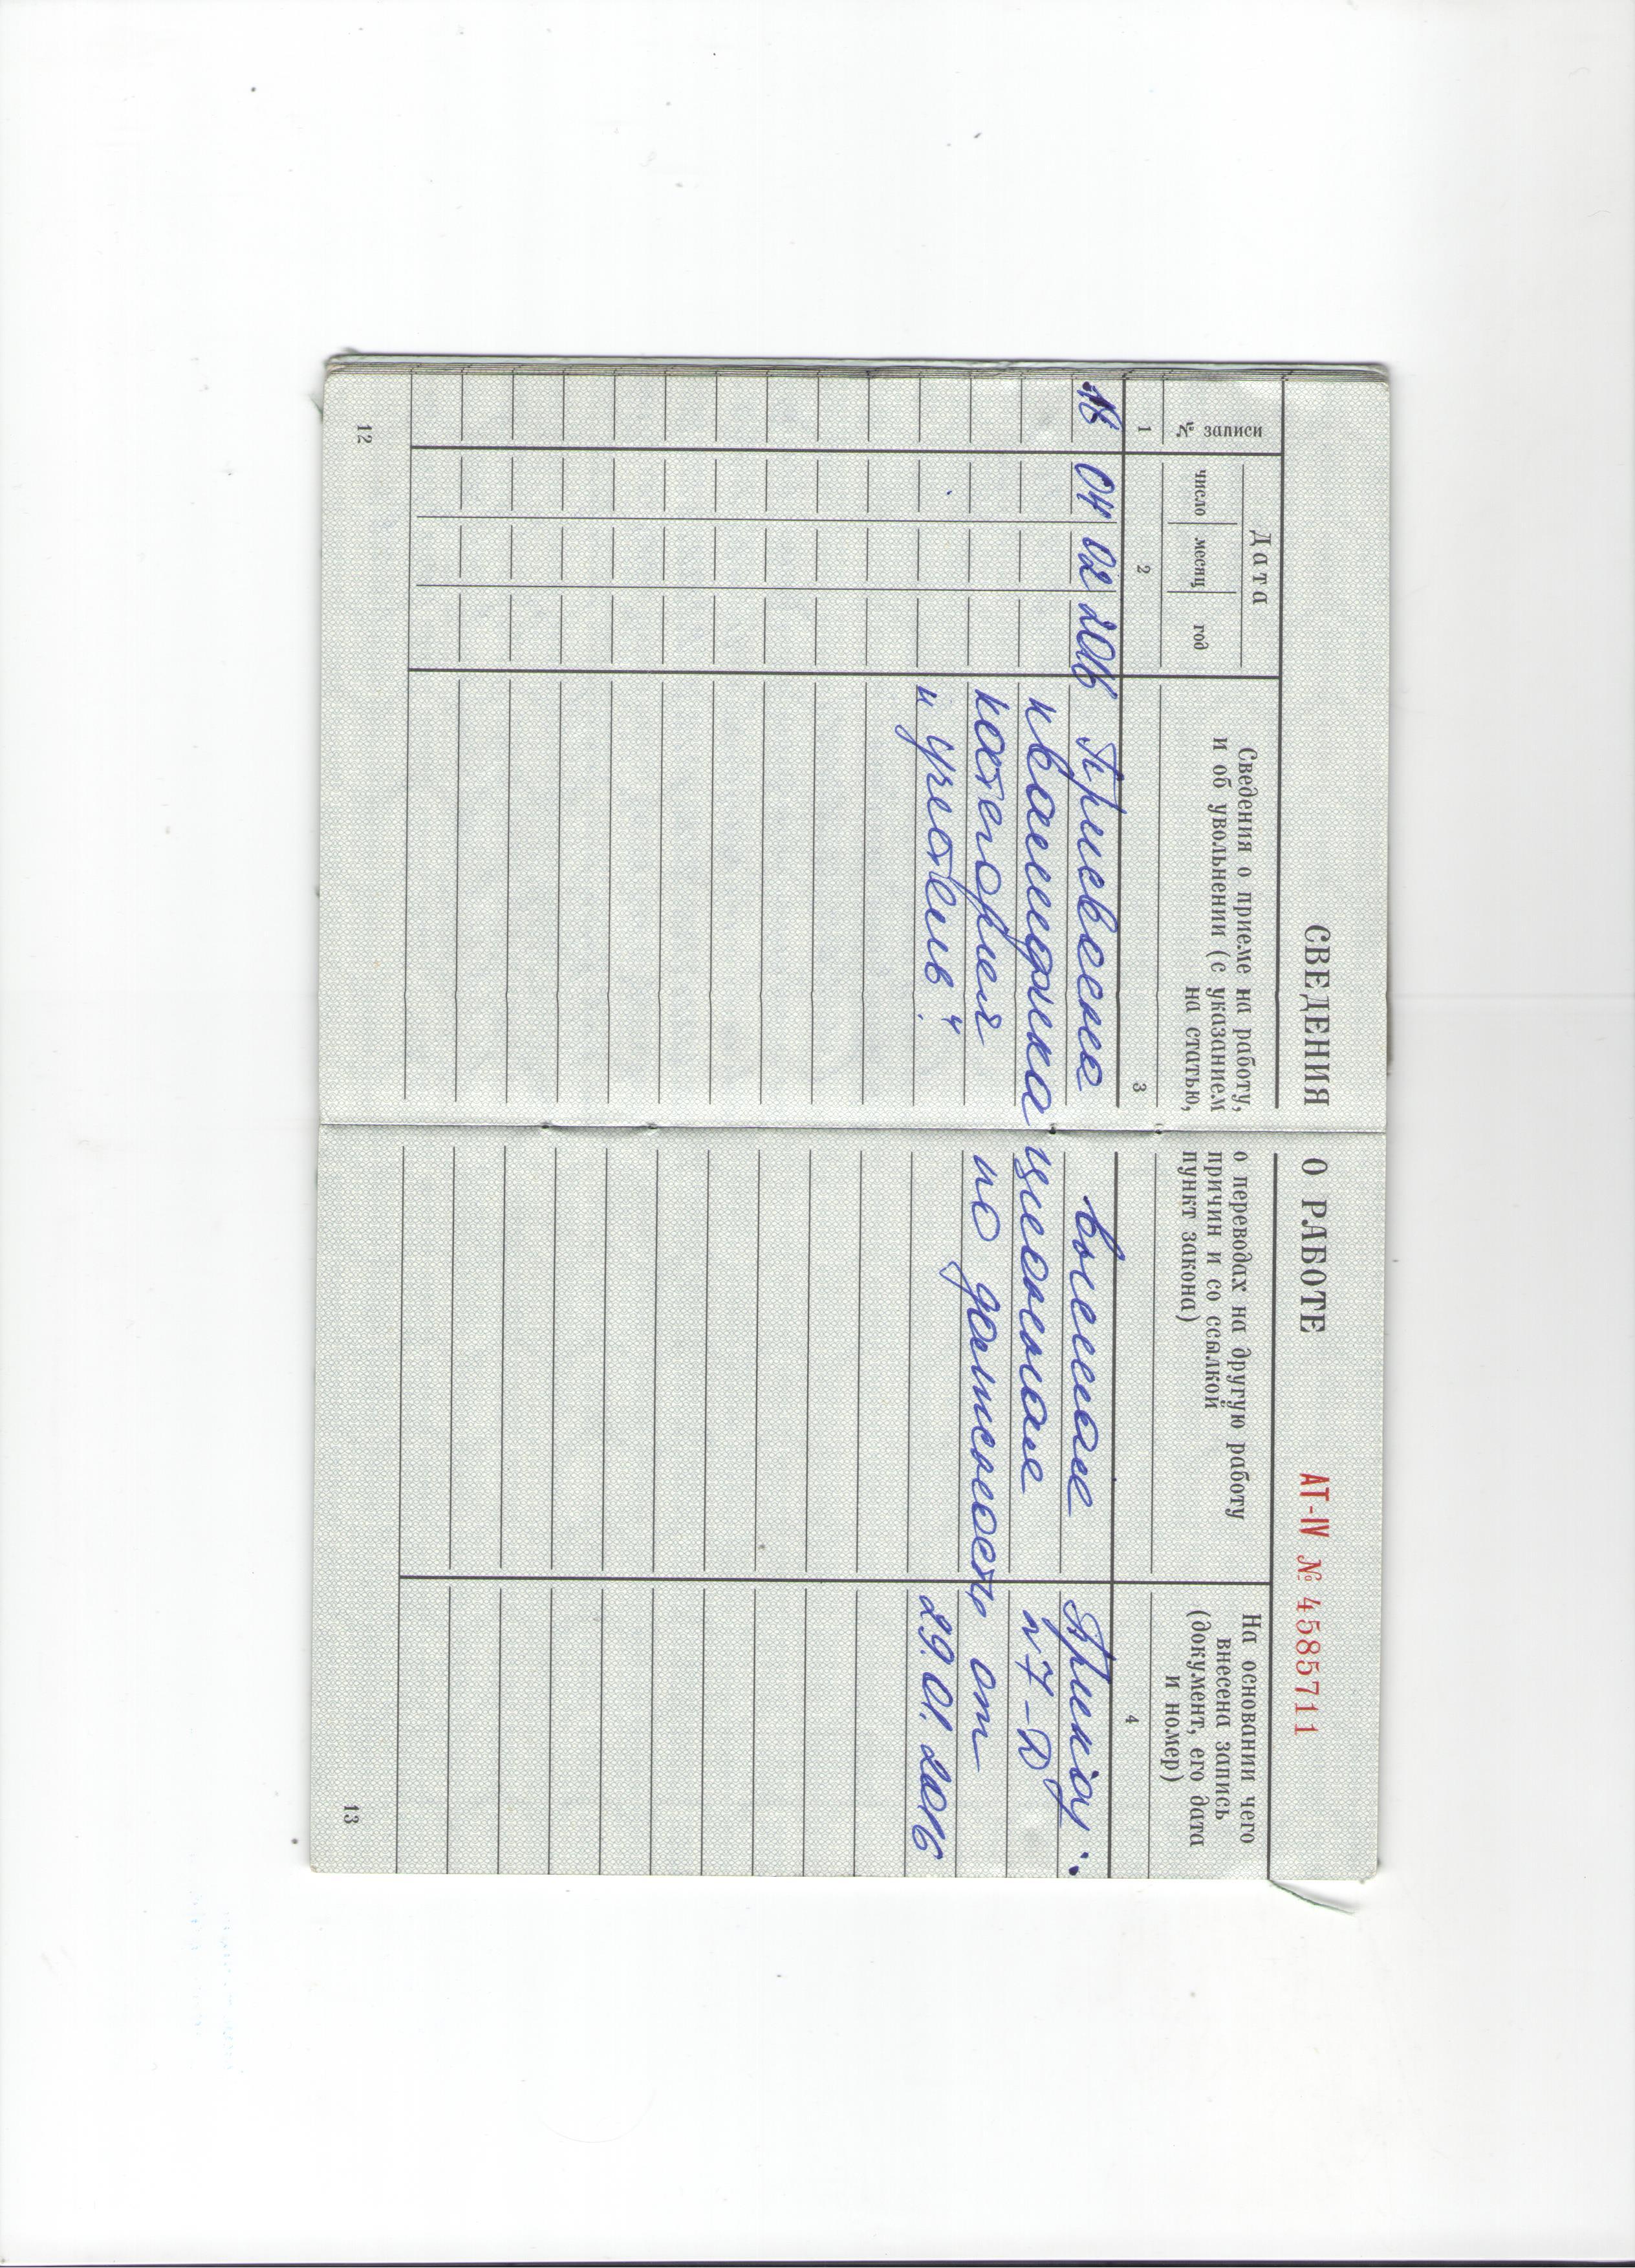 СВЕДЕНИЯ О РАБОТЕ
АТ-IV № 4585711
№ записи
Дата
число
месяц
год
Сведения о приеме на работу, о переводах на другую работу
и об увольнении (с указанием причин и со ссылкой
на статью, пункт закона)
На основании чего
внесена запись
(документ, его дата
и номер)
1
2
3
4
18 04 02 2016 Присвоена высшая Приказ
квалификационная №7-Д
категория по должности от
"учитель". 29.01.2016
12
13